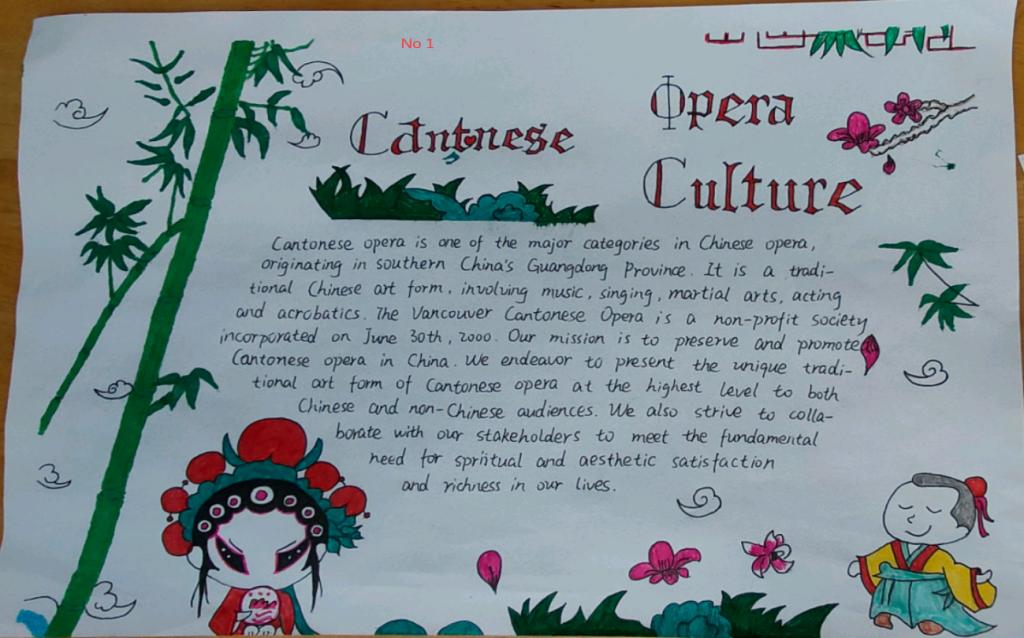 No 1
Cantonese
Opera
Culture
Cantonese opera is one of the major categories in Chinese opera,
originating in southern China's Guangdong Province. It is a tradi-
tional Chinese art form, involving music, singing, martial arts, acting
and acrobatics. The Vancouver Cantonese Opera is a non-profit society
incorporated on June 30th, 2000. Our mission is to preserve and promote
Cantonese opera in China. We endeavor to present the unique tradi-
tional art form of Cantonese opera at the highest level to both
Chinese and non-Chinese audiences. We also strive to colla-
borate with our stakeholders to meet the fundamental
need for spriitual and aesthetic satisfaction
and richness in our lives.